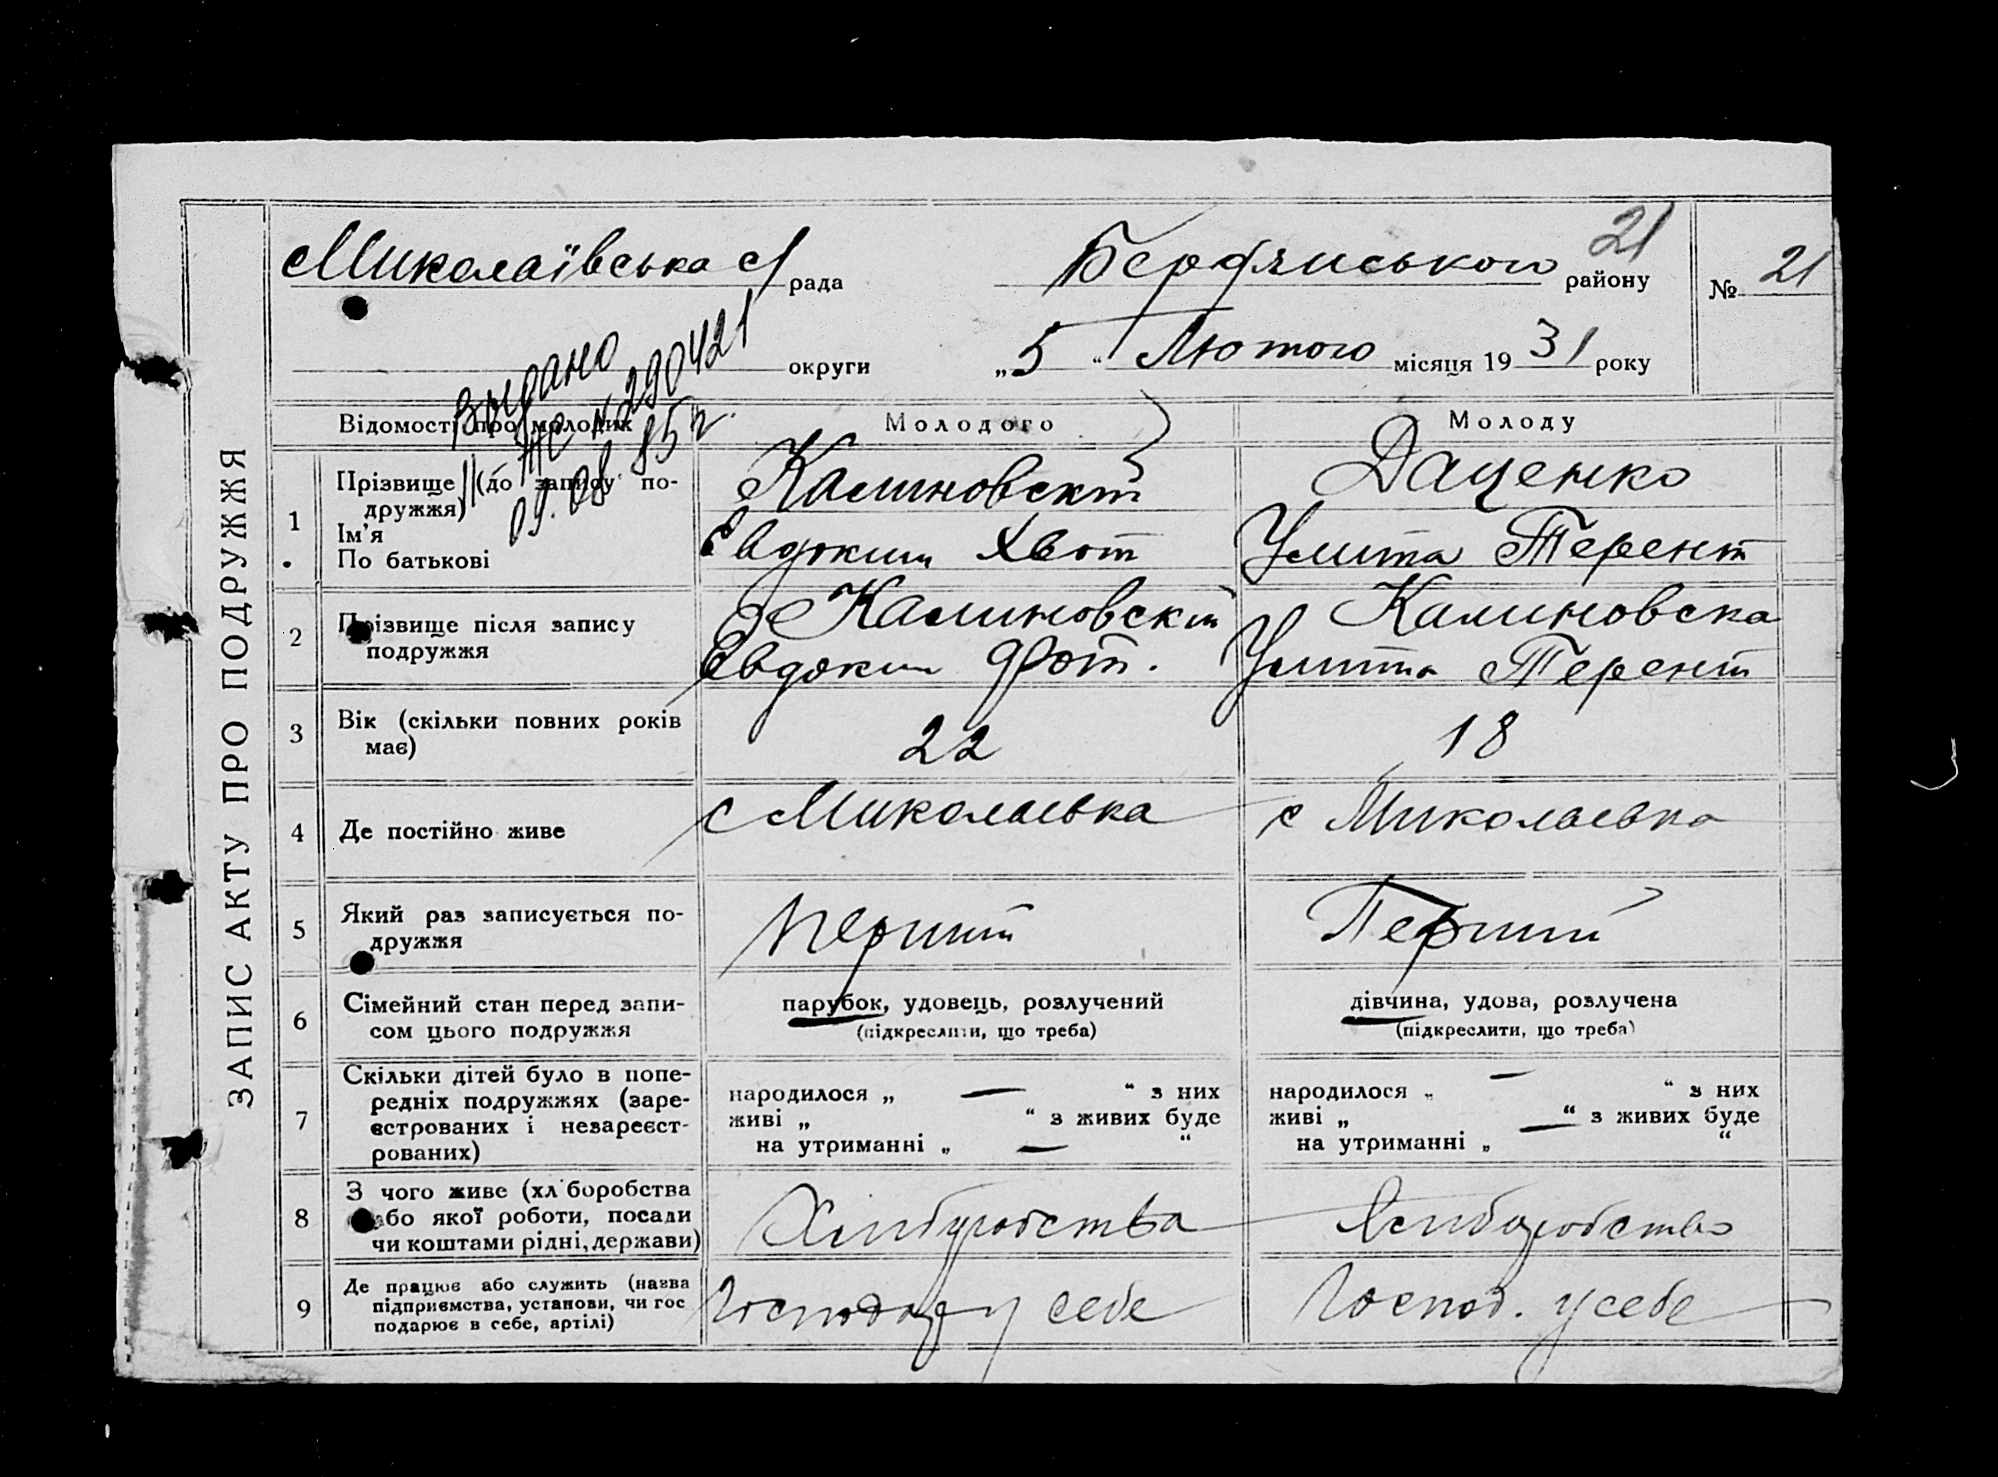 ЗАПИС АКТУ ПРО ПОДРУЖЖЯ
Миколаївська с/ рада
Бердянського району
21
№ 21
округи
„5“ Лютого місяця 1931 року
Выдано
ЖС №290421
09.08.85 г.
Відомості про молодих
Молодого
Молоду
1
Прізвище (до запису по-
дружжя)
Ім'я
По батькові
Калиновскій
Евдоким Хвот
Даценко
Улита Терент
2
Прізвище після запису
подружжя
Калиновскій
Евдоким Фот.
Калиновска
Улита Терент
3
Вік (скільки повних років
має)
22
18
4
Де постійно живе
с Миколаевка
с Миколаевка
5
Який раз записується по-
дружжя
Перший
Перший
6
Сімейний стан перед запи-
сом цього подружжя
парубок, удовець, розлучений
(підкреслити, що треба)
дівчина, удова, розлучена
(підкреслити, що треба)
7
Скільки дітей було в попе-
редніх подружжях (заре-
єстрованих і незареєст-
рованих)
народилося „ — “ з них
живі „ “ з живих буде
на утриманні „ — “
народилося „ — “ з них
живі „ — “ з живих буде
на утриманні „ “
8
З чого живе (хліборобства
або якої роботи, посади
чи коштами рідні, держави)
Хлибуробства
Хлибуробства
9
Де працює або служить (назва
підприємства, установи, чи гос
подарює в себе, артілі)
Господар у себе
Господ. у себе